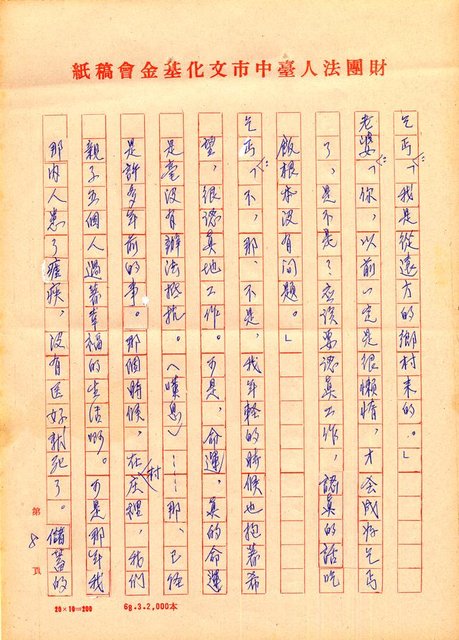 財團法人臺中市文化基金會稿紙
乞丐：「我是從遠方的鄉村來的。」
老婆：「你，以前一定是很懶惰，才會成為乞丐
了，是不是？應該要認真工作，認真的話吃
飯根本沒有問題。」
乞丐：「不，那、不是，我年輕的時候也抱著希
望，很認真地工作。可是，命運，真的命運
是毫沒有辦法抵抗。（嘆息）……那，已經
是許多年前的事。那個時候，在村庄裡，我們
親子五個人過著幸福的生活啊。可是那年我
那內人患了瘧疾，沒有医好就死了。儲蓄的
第 8 頁
20×10=200
68.3.2,000本